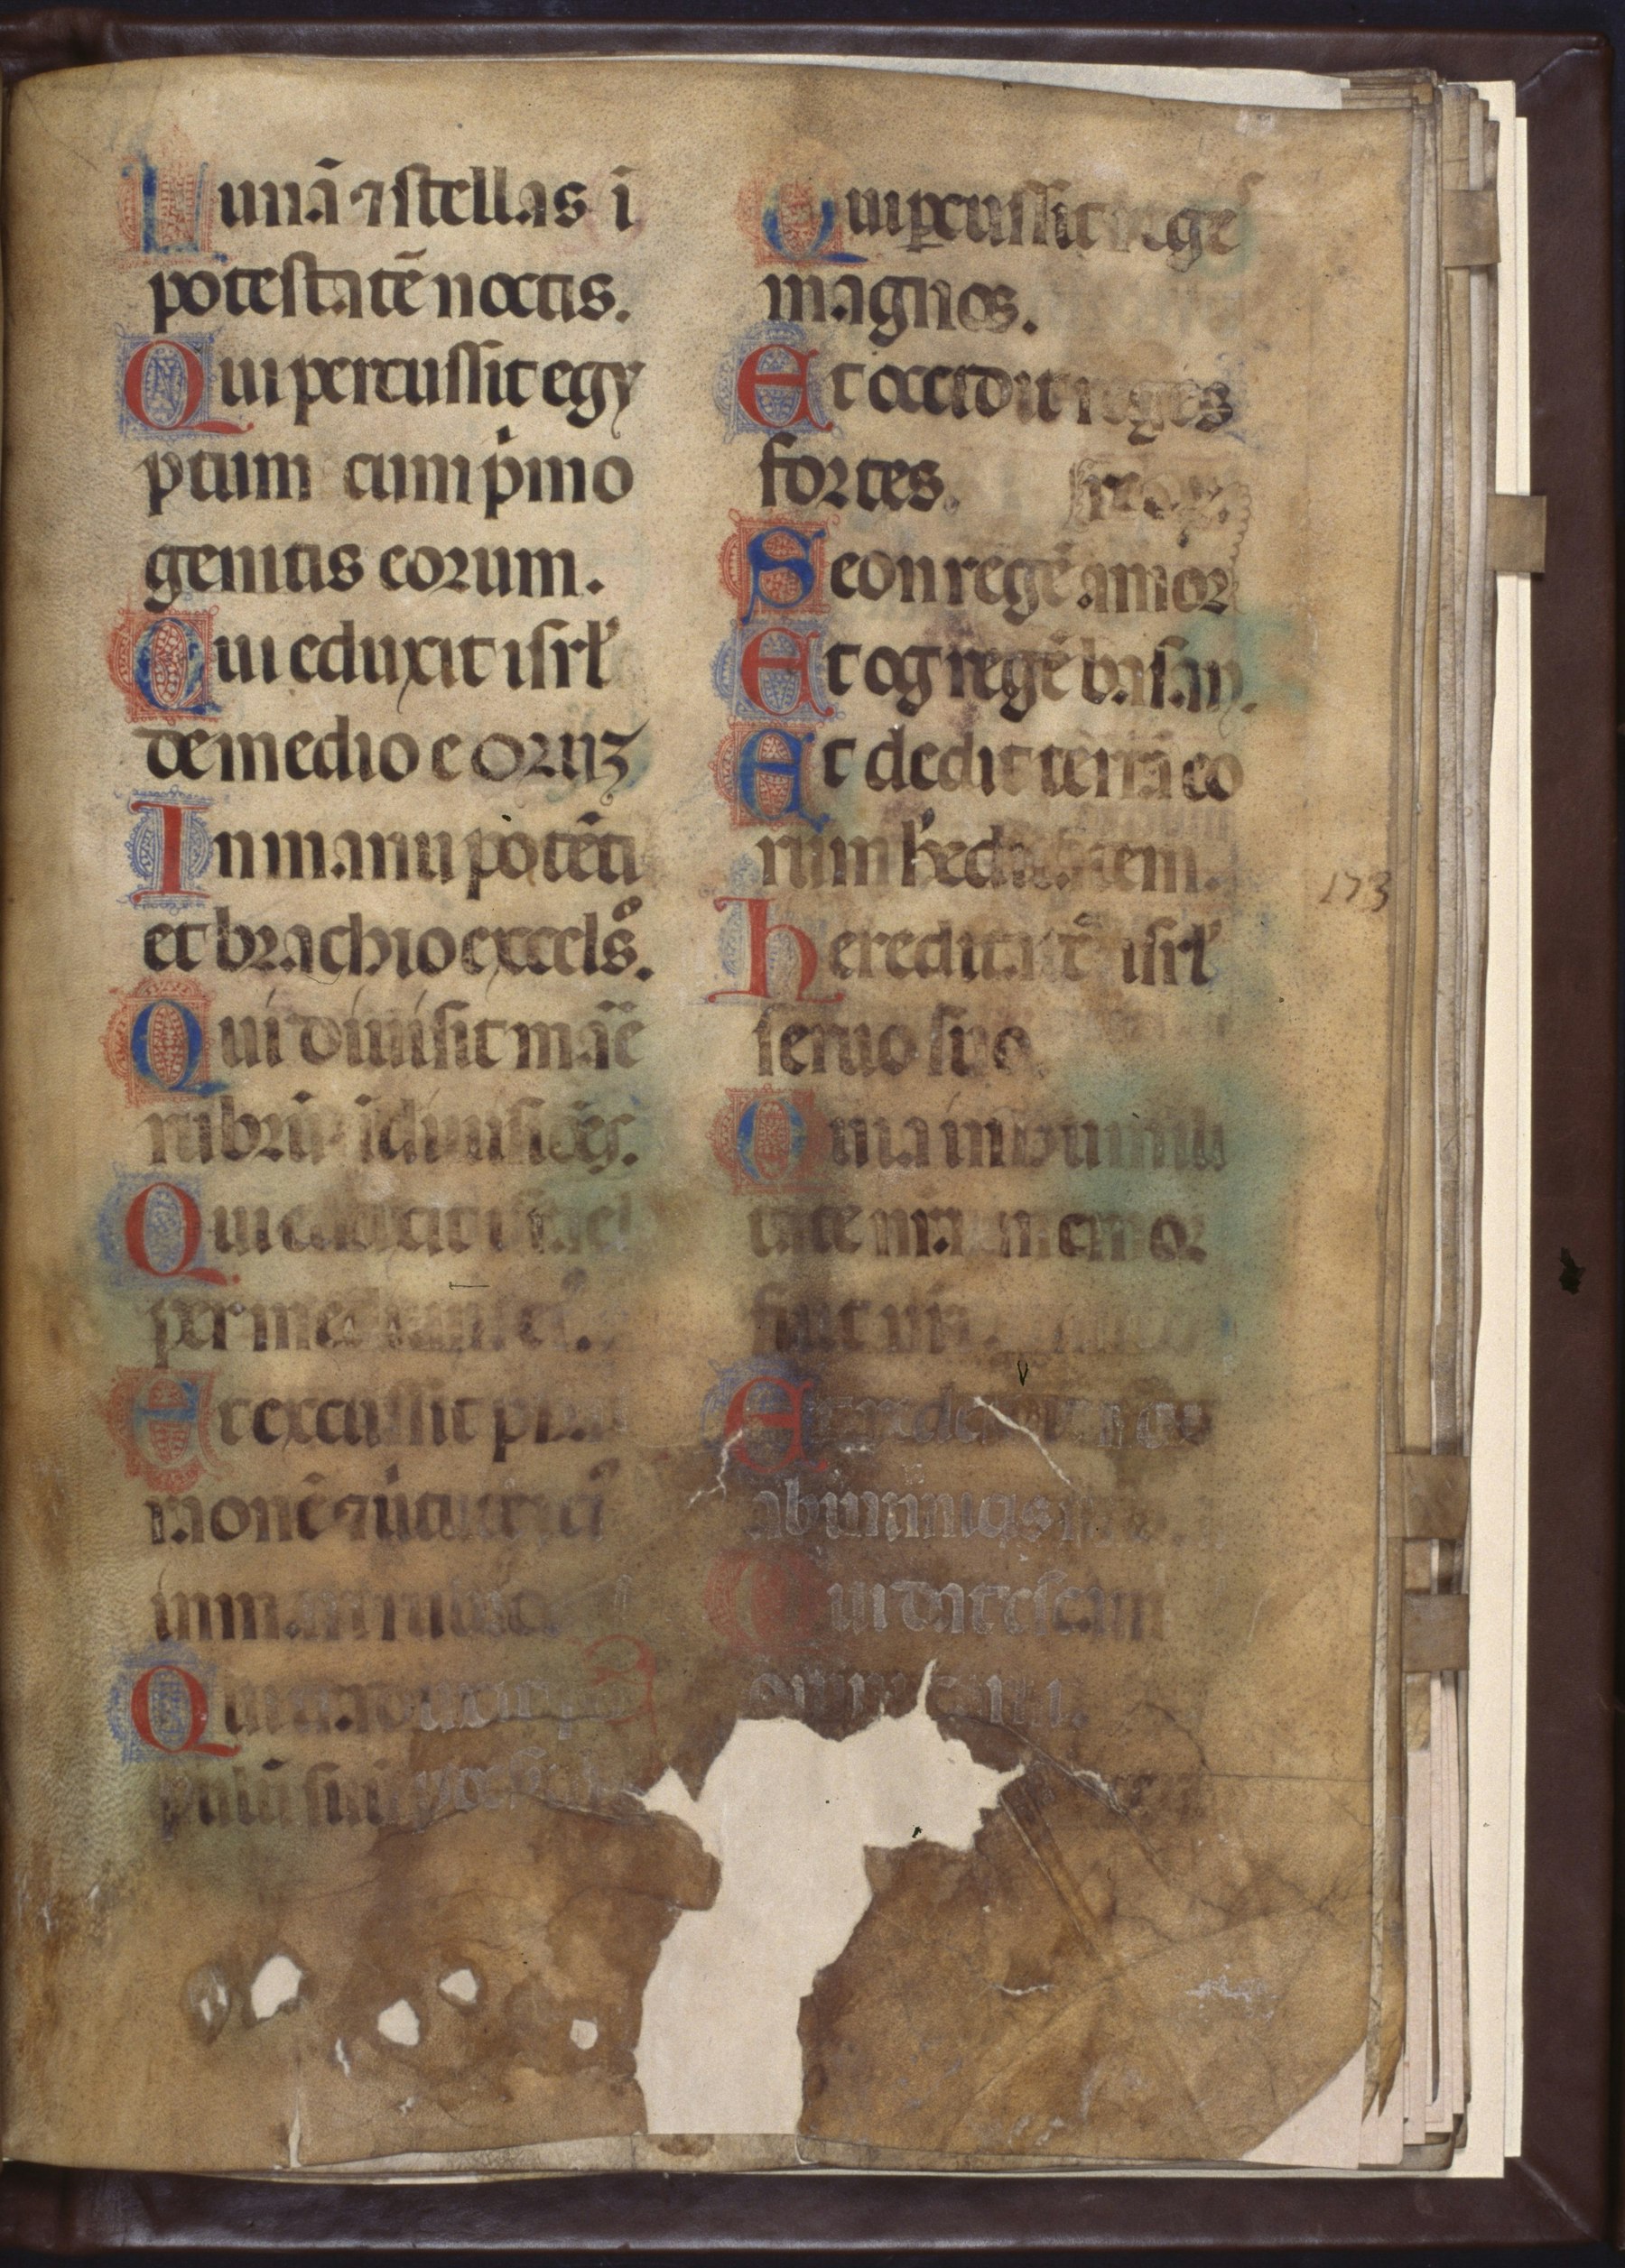 Lunã ⁊ stellas ĩ
potestatẽ noctis.
Qui percussit egy
ptum cum pⁱmo
genitis eorum.
Qui eduxit isrł
de medio eoruꝫ
In manu potẽti
et brachio excelsᵒ.
Qui diuisit marͤ
rubrũ ĩ diuisiões.
Qui eduxit israel
per medium eiꝰ.
Et excussit phaͣ
raonẽ ⁊ uirtutẽ eiꝰ
in mari rubro
Qui traduxit po
pulũ suũ
Qui ꝑcussit reges
magnos.
Et occidit reges
fortes.
Seon regẽ amor
Et og regẽ basan.
Et dedit terrã eo
rum hereditatem.
hereditatẽ isrł
seruo suo.
Quia in humili
tate nrã memor
fuit nri.
Et redemit nos
ab inimicis
Qui dat escam
omni carni.
173